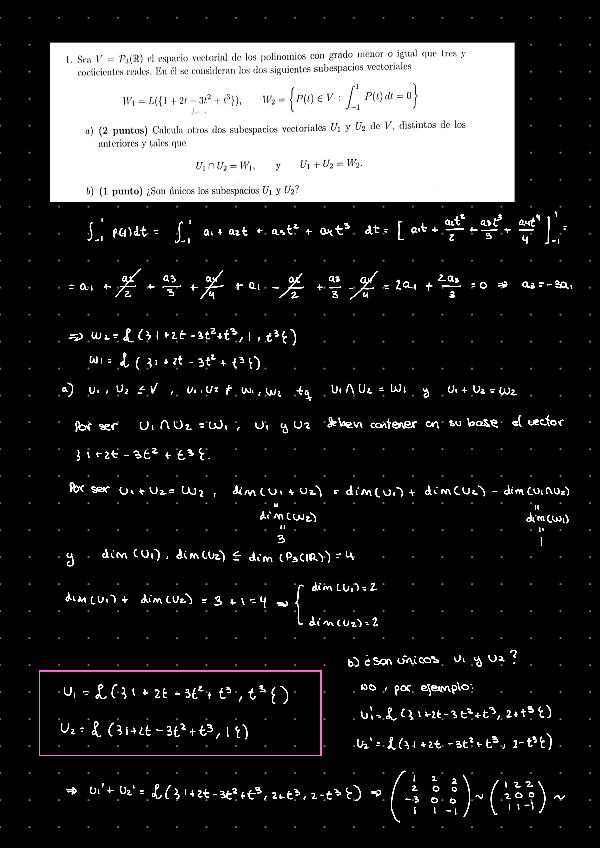 1. Sea V = P₃(ℝ) el espacio vectorial de los polinomios con grado menor o igual que tres y
coeficientes reales. En él se consideran los dos siguientes subespacios vectoriales
W₁ = L({1 + 2t − 3t² + t³}), W₂ = { P(t) ∈ V : ∫₋₁¹ P(t) dt = 0 }
a) (2 puntos) Calcula otros dos subespacios vectoriales U₁ y U₂ de V, distintos de los
anteriores y tales que
U₁ ∩ U₂ = W₁, y U₁ + U₂ = W₂.
b) (1 punto) ¿Son únicos los subespacios U₁ y U₂?
∫₋₁¹ P(t)dt = ∫₋₁¹ a₁ + a₂t + a₃t² + a₄t³ dt = [ a₁t + a₂t²/2 + a₃t³/3 + a₄t⁴/4 ]₋₁¹ =
= a₁ + a₂/2 + a₃/3 + a₄/4 + a₁ - a₂/2 + a₃/3 - a₄/4 = 2a₁ + 2a₃/3 = 0 ⇒ a₃ = -3a₁
⇒ W₂ = L({1+2t-3t²+t³, 1, t³})
W₁ = L({1+2t-3t²+t³})
a) U₁, U₂ ≤ V, U₁, U₂ ≠ W₁, W₂ tq U₁ ∩ U₂ = W₁ y U₁ + U₂ = W₂
Por ser U₁ ∩ U₂ = W₁, U₁ y U₂ deben contener en su base el vector
{1+2t-3t²+t³}.
Por ser U₁ + U₂ = W₂, dim(U₁ + U₂) = dim(U₁) + dim(U₂) - dim(U₁∩U₂)
" "
dim(W₂) dim(W₁)
" "
3 1
y dim(U₁), dim(U₂) ≤ dim(P₃(ℝ)) = 4
dim(U₁) + dim(U₂) = 3 + 1 = 4 ⇒ { dim(U₁) = 2
dim(U₂) = 2
U₁ = L({1+2t-3t²+t³, t³})
U₂ = L({1+2t-3t²+t³, 1})
b) ¿Son únicos U₁ y U₂?
No, por ejemplo:
U₁' = L({1+2t-3t²+t³, 2+t³})
U₂' = L({1+2t-3t²+t³, 2-t³})
⇒ U₁' + U₂' = L({1+2t-3t²+t³, 2+t³, 2-t³}) ⇒ ( 1 2 2 ) ~ ( 1 2 2 ) ~
2 0 0 2 0 0
-3 0 0 1 1 -1
1 1 -1